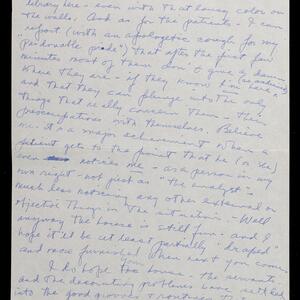 library here - even with that lousy color on
the walls. And as for the patients - I can
report (with an apologetic cough for my
"pardonable pride") that after the first few
minutes most of them don't give a damn
where they are - if they know I'm here -
and that they can plunge into the only
things that really concern them - their
preoccupations with themselves. Believe
me - it's a major achievement when a
patient gets to the point that he (or she)
even notices me - as a person in my
own right - not just as "the analyst" -
much less noticing any other external or
objective things in the situation. - Well
anyway the house is still fun - and I
hope it'll be at least partially "draped"
and more furnished when next you come.
I do hope too house - the servants
and the decorating problems have settled
into the good grooves